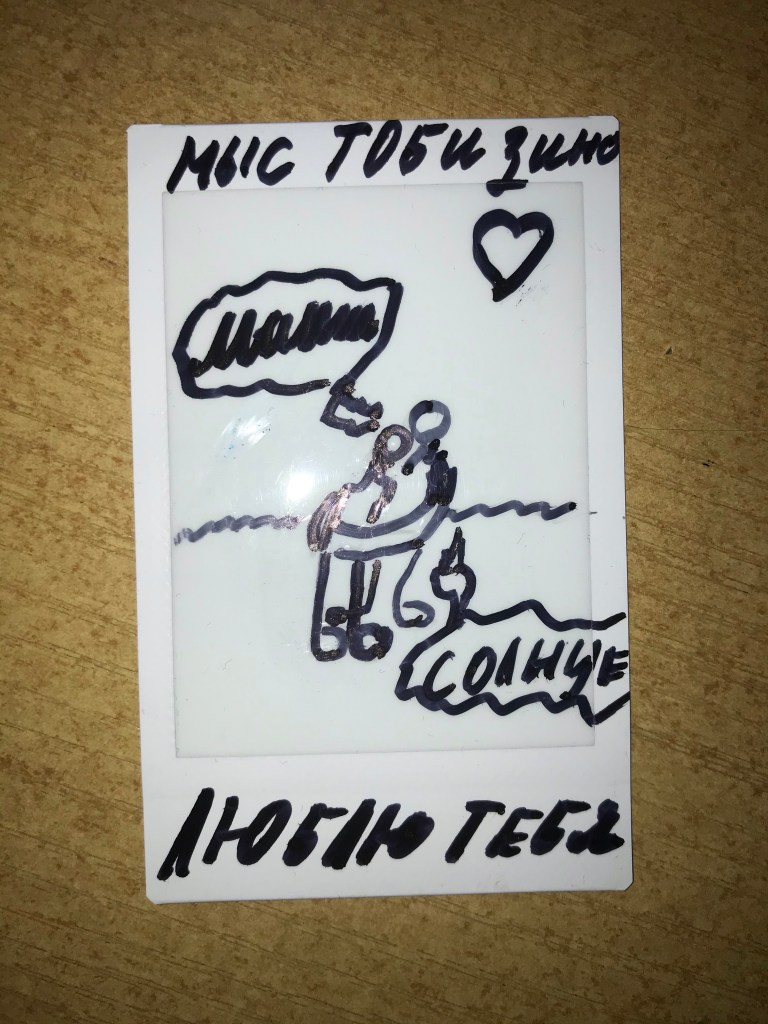 МЫС ТОБИЗИНО
СОЛНЦЕ
ЛЮБЛЮ ТЕБЯ